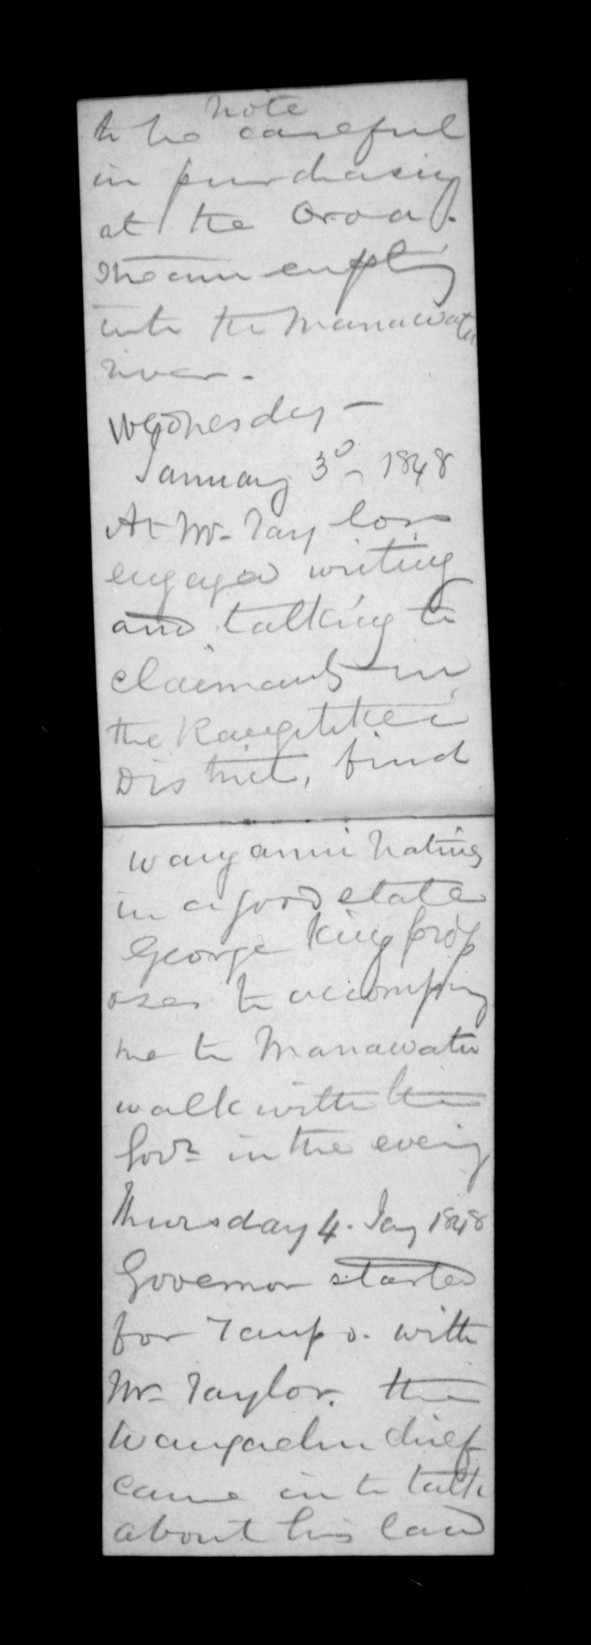 Note
to be careful
in purchasing
at the Oroa.
Stream emptig
into the Manawatu
river.
Wednesday –
January 3d 1848
At Mr. Taylors
engaged writing
and talking to
claimants in
the Rangitikei
District, find
Wanganui Natives
in a good state
George King prop
oses to accompany
me to Manawatu
walk with the
Govr in the evening
Thursday 4. Jany 1848
Governor started
for Taupo. with
Mr. Taylor. the
chief
came in to talk
about his land